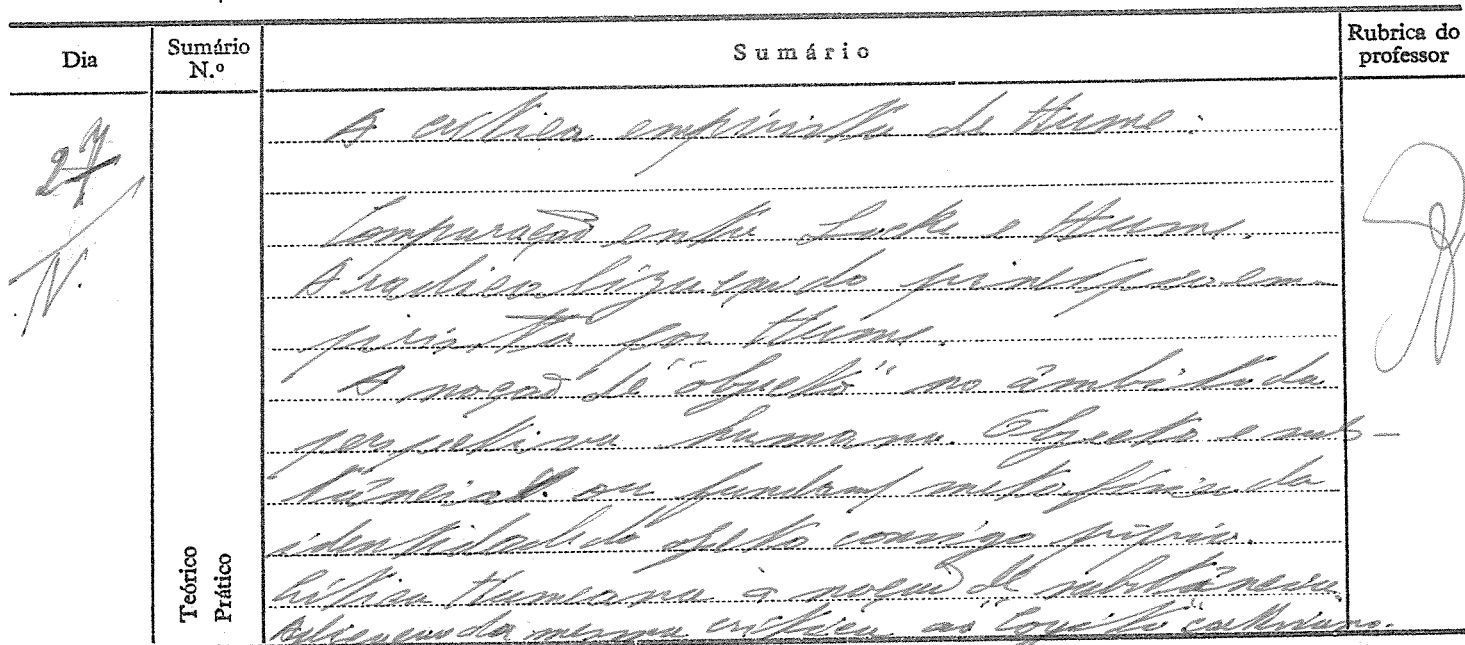 Dia
Sumário
N.º
Sumário
Rubrica do
professor
27
A crítica empirista de Hume.
Comparação entre Locke e Hume.
A radicalização do princípio em-
pirista por Hume.
A noção de "objecto" no âmbito da
perspectiva humana. Objecto e subs-
tância ou fundam/ metafísico da
identidade do objecto consigo próprio.
Crítica Humeana à noção de substância
Aplicação da mesma crítica ao "Cogito" cartesiano.
Teórico
Prático